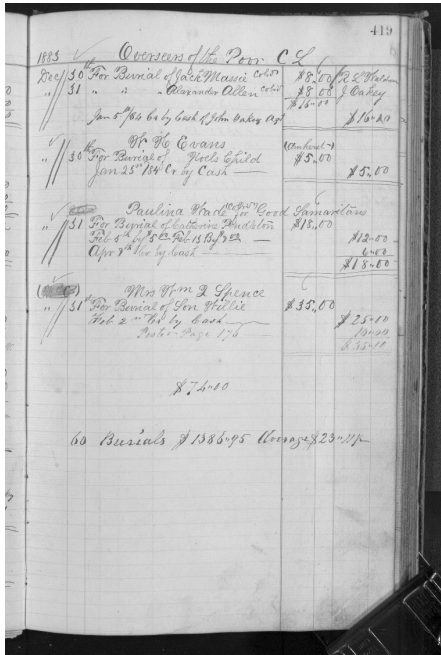 419
1883 Overseers of the Poor C L
Dec 30th For Burial of Jack Massie Cold $8.00 R L
" 31 " " " Alexander Allen Cold $8.00 J Oakey
$16.00
Jan 5th/84 Cr by Cash of John Oakey Agt $16.00
W H Evans (Amherst)
" 30th For Burial of Child $5.00
Jan 25th 184 Cr by Cash $5.00
Paulina Wade Cold for Good Samaritans
" 31 For Burial of Catherine Pendleton $18.00
Feb 5th by $5 Feb 13 By $7 $12.00
Apr Cr by Cash 6.00
$18.00
Mrs Wm R Spence
" 31st For Burial of Son Willie $35.00
Feb 2 Cr by Cash $25.00
Page 176 10.00
$35.00
60 Burials $1386.95 Average $23